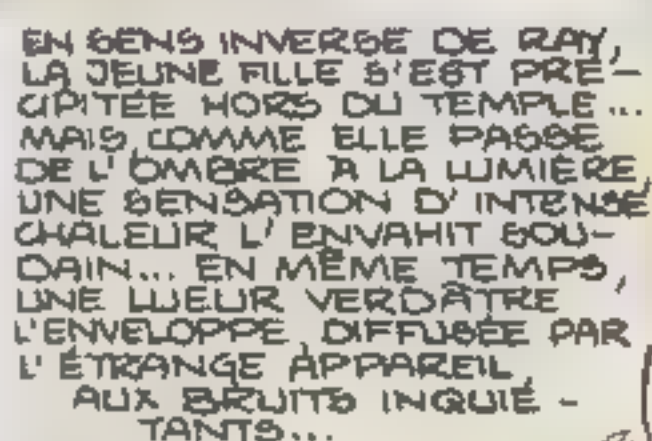 EN SENS INVERSE DE RAY,
LA JEUNE FILLE S'EST PRÉ-
CIPITÉE HORS DU TEMPLE...
MAIS, COMME ELLE PASSE
DE L'OMBRE À LA LUMIÈRE,
UNE SENSATION D'INTENSE
CHALEUR L'ENVAHIT SOU-
DAIN... EN MÊME TEMPS,
UNE LUEUR VERDÂTRE
L'ENVELOPPE, DIFFUSÉE PAR
L'ÉTRANGE APPAREIL,
AUX BRUITS INQUIÉ-
TANTS...